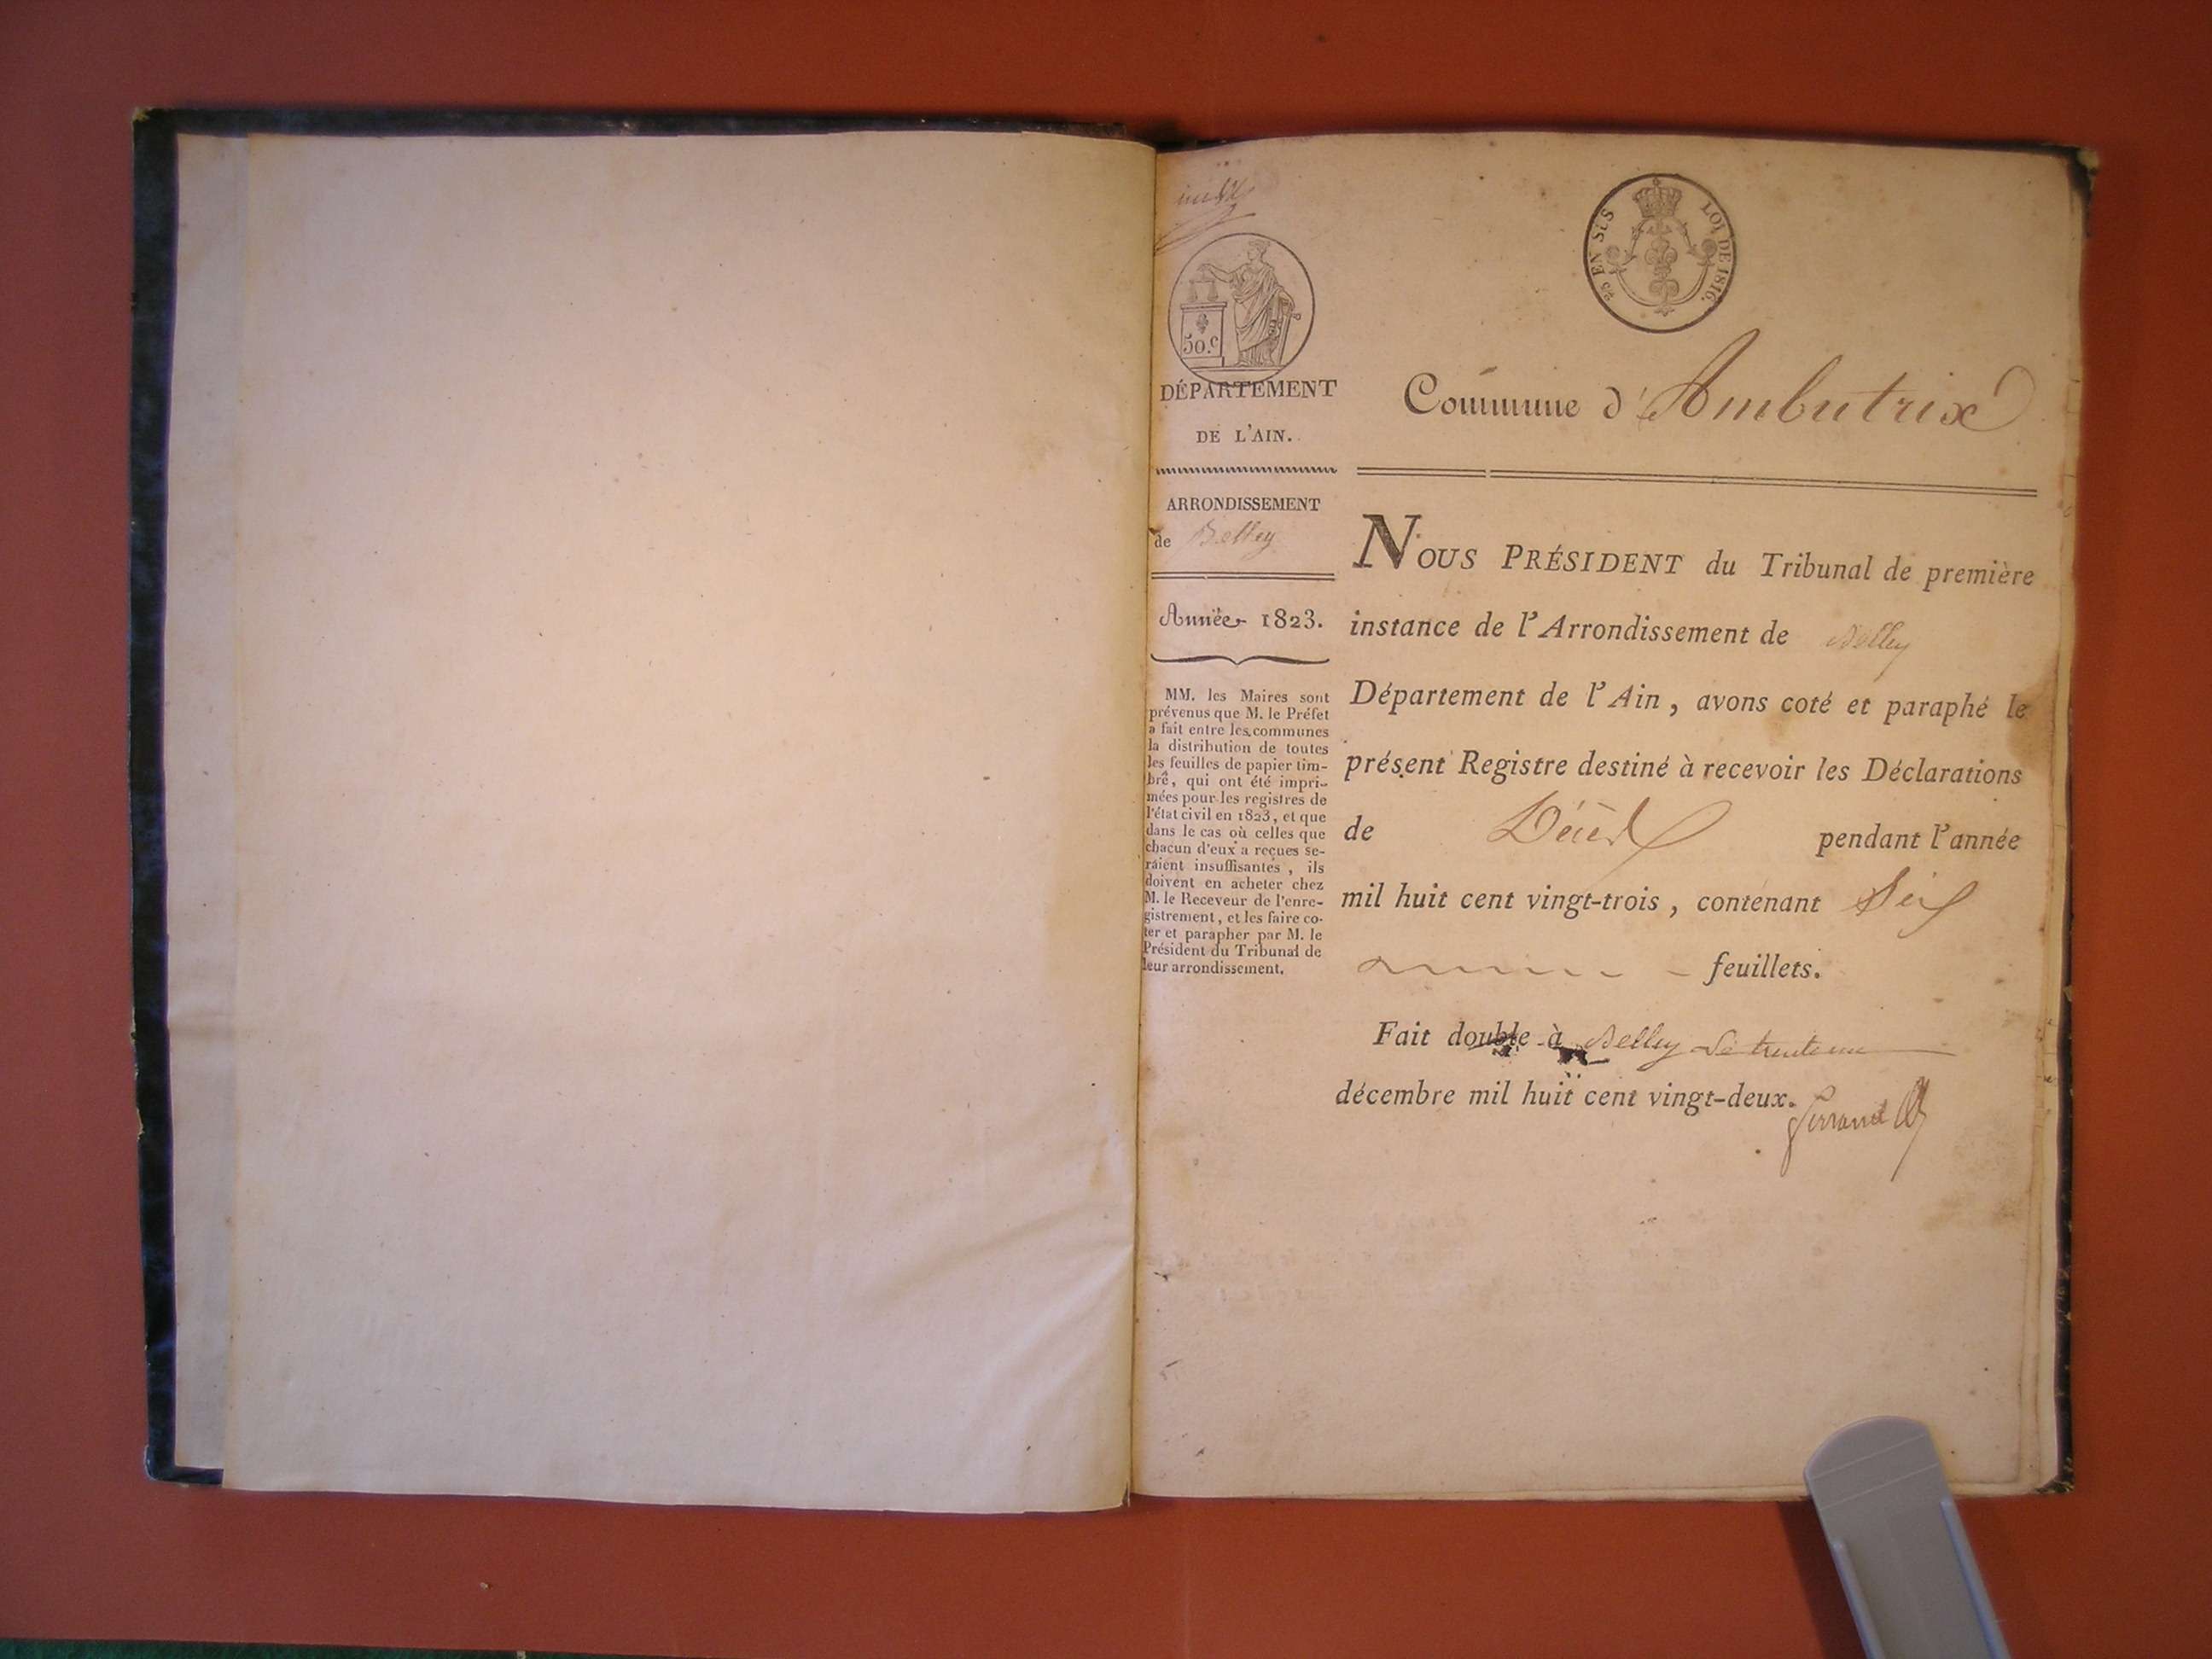 50.c
25 EN SUS LOI DE 1816.
DÉPARTEMENT
DE L'AIN.
ARRONDISSEMENT
de Belley
Année 1823.
MM. les Maires sont
prévenus que M. le Préfet
a fait entre les communes
la distribution de toutes
les feuilles de papier tim-
bré, qui ont été impri-
mées pour les registres de
l'état civil en 1823, et que
dans le cas où celles que
chacun d'eux a reçues se-
raient insuffisantes, ils
doivent en acheter chez
M. le Receveur de l'enre-
gistrement, et les faire co-
ter et parapher par M. le
Président du Tribunal de
leur arrondissement.
Commune d'Ambutrix
NOUS PRÉSIDENT du Tribunal de première
instance de l'Arrondissement de Belley
Département de l'Ain, avons coté et paraphé le
présent Registre destiné à recevoir les Déclarations
de Décès pendant l'année
mil huit cent vingt-trois, contenant Six
feuillets.
Fait double à Belley Le trente un
décembre mil huit cent vingt-deux.